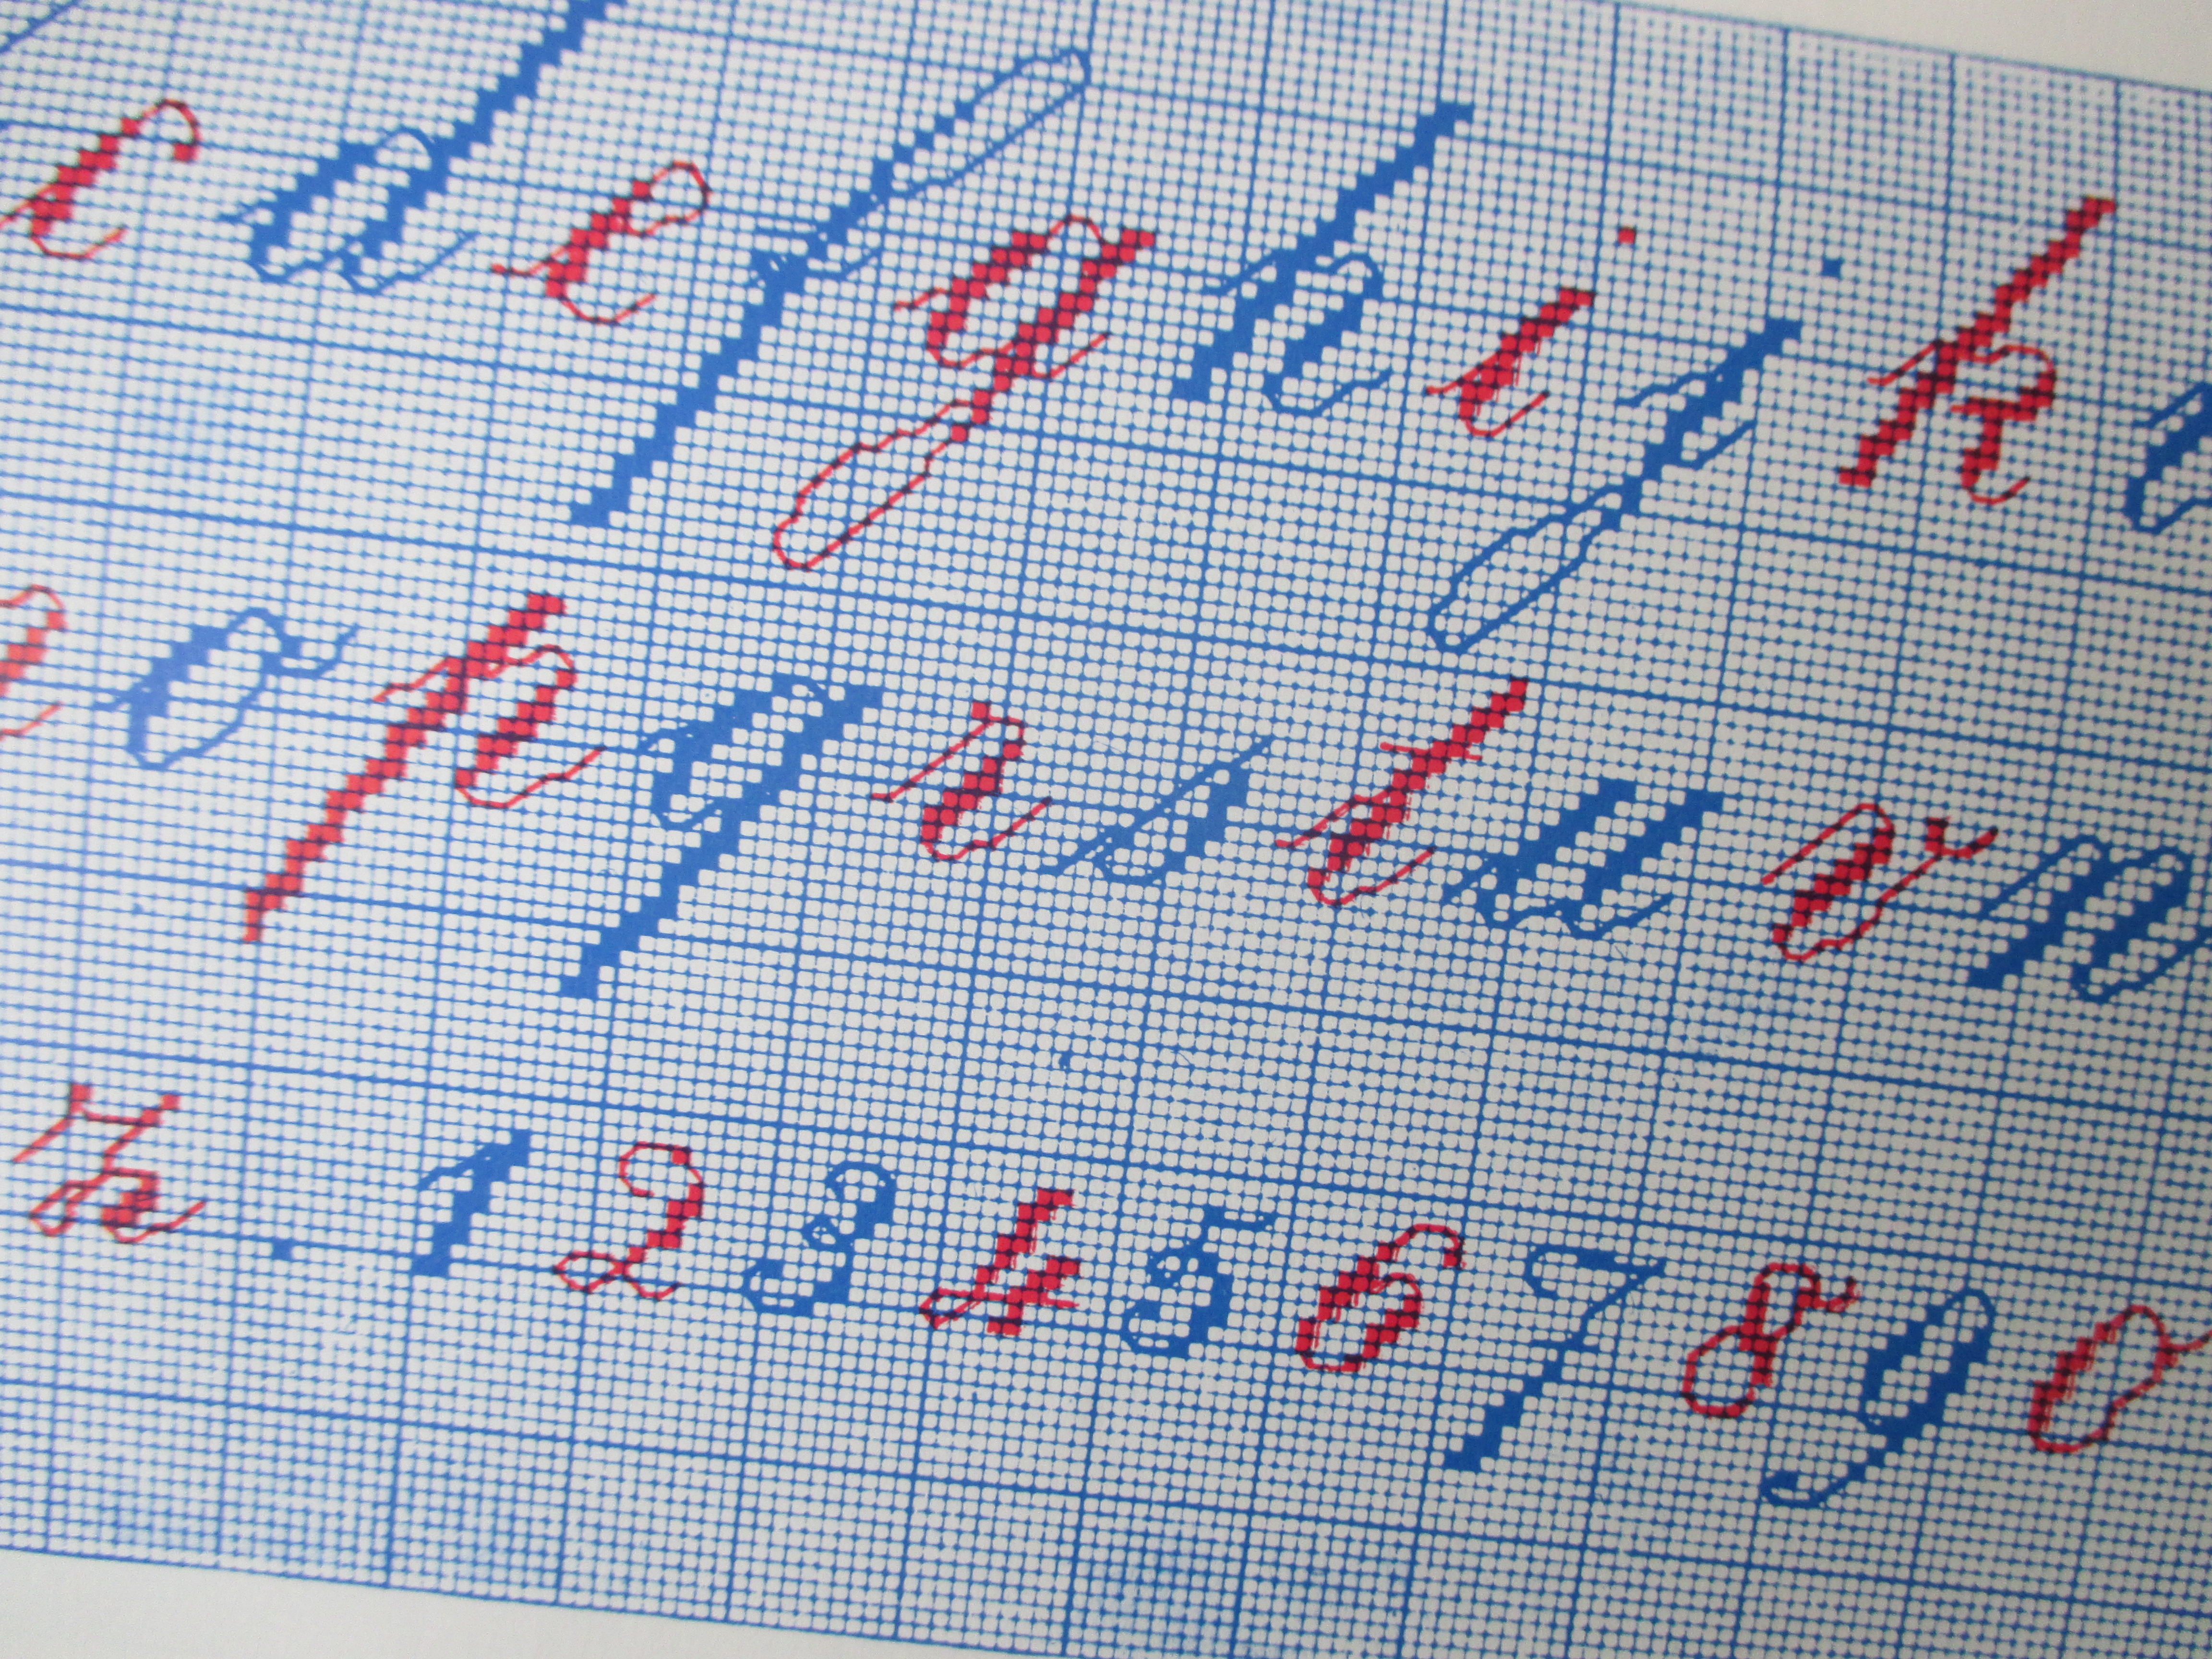 c d e f g h i j k
o p q r s t u v w
z . 1 2 3 4 5 6 7 8 9 0